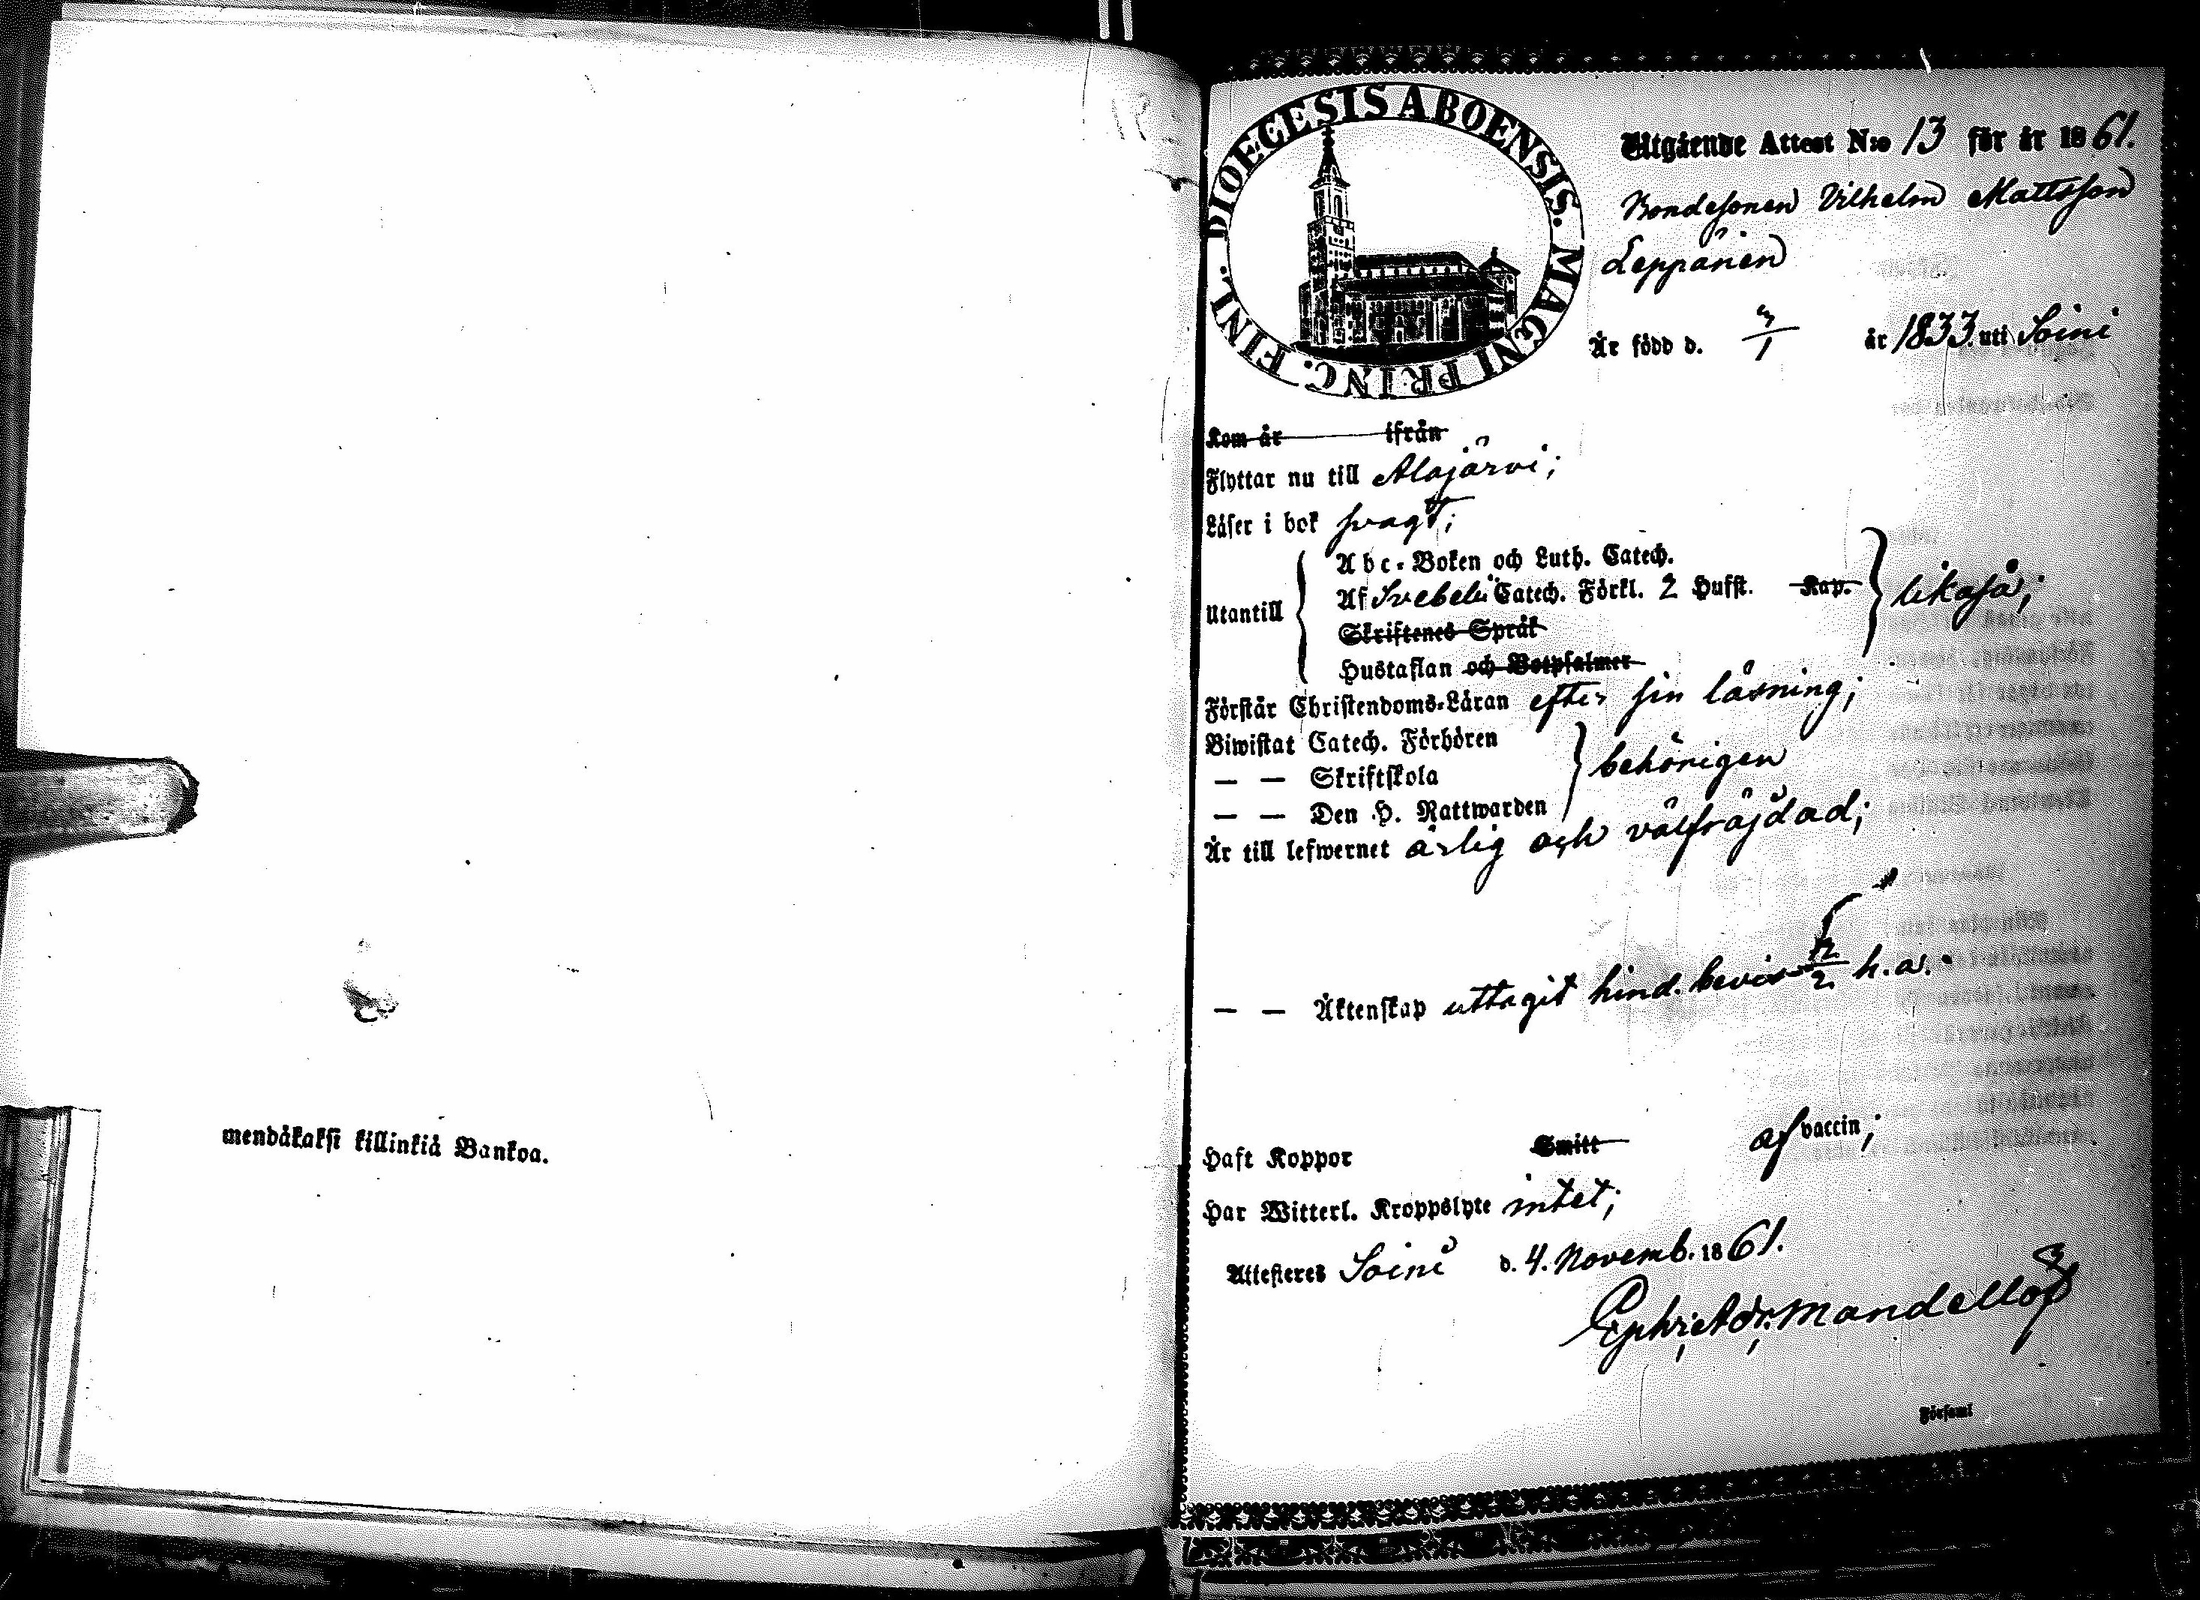 mendäkaksi killinkiä Bankoa.
DIOECESIS ABOENSIS. MAGNI PRINC. FINL.
Utgående Attest N:o 13 för år 1861.
Bondesonen Vilhelm Mattsson
Leppänen
Är född d. 3/1 år 1833. uti Soini
Kom år ifrån
Flyttar nu till Alajärvi;
Läser i bok svagt;
Utantill
Abc-Boken och Luth. Catech.
Af Svebeli Catech. Förkl. 2 Hufst. Kap.
Skriftenes Språk
Hustaflan och Botpsalmer
likaså;
Förstår Christendoms-Läran efter sin läsning;
Biwistat Catech. Förhören
— — Skriftskola
— — Den H. Nattwarden
behörigen
Är till lefwernet ärlig och välfräjdad;
— — Äktenskap uttagit hind. bevis /2 h.a.
Haft Koppor Smitt af vaccin;
Har Witterl. Kroppslyte intet;
Attesteres Soini d. 4. Novemb. 1861.
Mandellöf
Församl